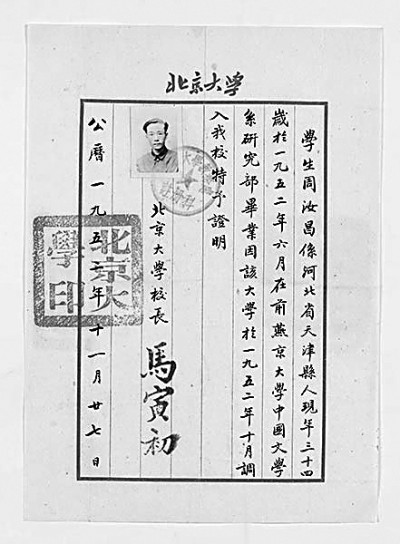 北京大学
學生周汝昌係河北省天津縣人現年三十四
歲於一九五二年六月在前燕京大學中國文學
系研究部畢業因該大學於一九五二年十月調
入我校特予證明
北京大學校長 馬寅初
公曆一九五二年十一月廿七日
北京大
學印